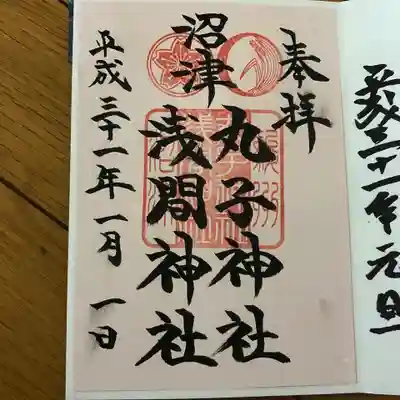 奉拝
沼津
丸子神社
浅間神社
平成三十一年一月一日
平成三十一年元旦